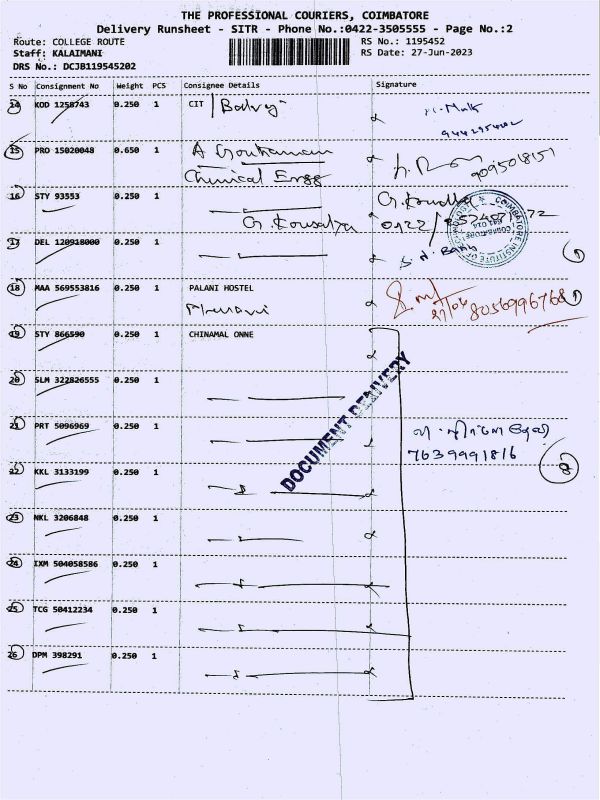 THE PROFESSIONAL COURIERS, COIMBATORE
Delivery Runsheet - SITR - Phone No.:0422-3505555 - Page No.:2
Route: COLLEGE ROUTE RS No.: 1195452
Staff: KALAIMANI RS Date: 27-Jun-2023
DRS No.: DCJB119545202
S No Consignment No Weight PCS Consignee Details Signature
14 KOD 1258743 0.250 1 CIT
15 PRO 15020048 0.650 1 A Gouthamam
Chemical Engg
16 STY 93553 0.250 1
G. Kousalya
17 DEL 120918000 0.250 1
18 MAA 569553816 0.250 1 PALANI HOSTEL
8056996768
19 STY 866590 0.250 1 CHINAMAL ONNE
DOCUMENT DELIVERY
20 SLM 322826555 0.250 1
21 PRT 5096969 0.250 1
7639991816
22 KKL 3133199 0.250 1
8
23 NKL 3206848 0.250 1
24 IXM 504058586 0.250 1
25 TCG 50412234 0.250 1
26 DPM 398291 0.250 1